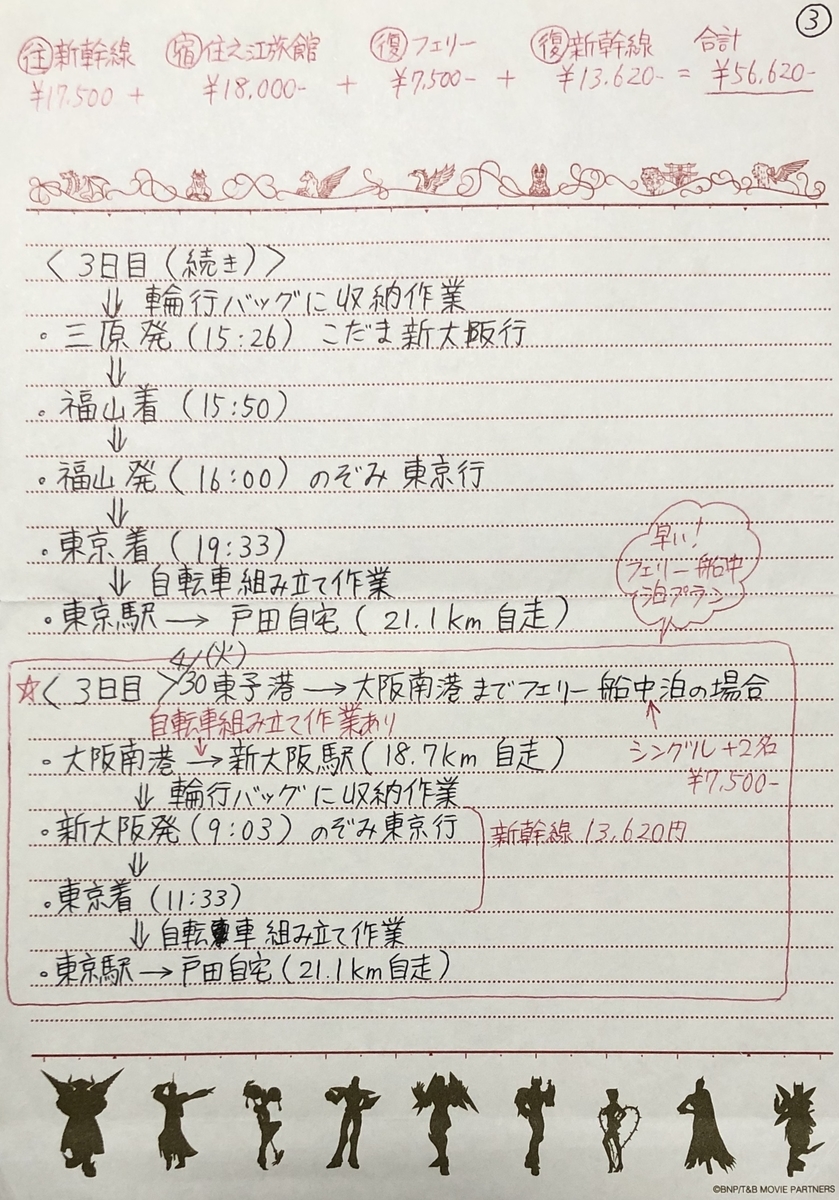 ③
往新幹線 宿住之江旅館 復フェリー 復新幹線 合計
¥17,500 + ¥18,000- + ¥7,500- + ¥13,620- = ¥56,620-
〈3日目(続き)〉
⇓ 輪行バッグに収納作業
・三原発(15:26) こだま新大阪行
⇓
・福山着(15:50)
⇓
・福山発(16:00)のぞみ 東京行
⇓
・東京着(19:33)
⇓ 自転車組み立て作業
・東京駅→戸田自宅(21.1km自走)
早い!
フェリー船中
泊プラン
4/30(火)
☆〈3日目〉東予港→大阪南港までフェリー船中泊の場合
自転車組み立て作業あり
・大阪南港→新大阪駅(18.7km自走)
シングル+2名
¥7,500-
⇓ 輪行バッグに収納作業
・新大阪発(9:03)のぞみ東京行
新幹線 13,620円
⇓
・東京着(11:33)
⇓ 自転車組み立て作業
・東京駅→戸田自宅(21.1km自走)
©BNP/T&B MOVIE PARTNERS